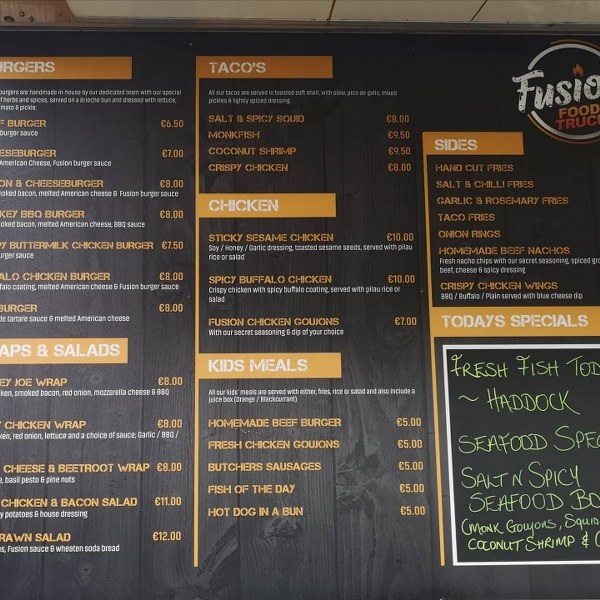 BURGERS
burgers are handmade in-house by our dedicated team with our special
of herbs and spices, served on a Brioche Bun and dressed with lettuce,
tomato & pickle.
BURGER €6.50
burger sauce
CHEESEBURGER €7.00
American Cheese, Fusion burger sauce
& CHEESEBURGER €8.00
smoked bacon, melted American cheese & Fusion burger sauce
BBQ BURGER €8.00
smoked bacon, melted American cheese, BBQ sauce
BUTTERMILK CHICKEN BURGER €7.50
burger sauce
CHICKEN BURGER €8.00
coating, melted American cheese & Fusion burger sauce
BURGER €8.00
tartare sauce & melted American cheese
& SALADS
JOE WRAP €8.00
smoked bacon, red onion, mozzarella cheese & BBQ
CHICKEN WRAP €8.00
red onion, lettuce and a choice of sauce; Garlic / BBQ /
CHEESE & BEETROOT WRAP €8.00
basil pesto & pine nuts
CHICKEN & BACON SALAD €11.00
potatoes & house dressing
PRAWN SALAD €12.00
Fusion sauce & wheaten soda bread
TACO'S
All our tacos are served in toasted soft shell, with slaw, pico de gallo, mixed
pickles & lightly spiced dressing
SALT & SPICY SQUID €8.00
MONKFISH €9.50
COCONUT SHRIMP €9.50
CRISPY CHICKEN €8.00
CHICKEN
STICKY SESAME CHICKEN €10.00
Soy / Honey / Garlic dressing, toasted sesame seeds, served with pilau
rice or salad
SPICY BUFFALO CHICKEN €10.00
Crispy chicken with spicy buffalo coating, served with pilau rice or
salad
FUSION CHICKEN GOUJONS €7.00
With our secret seasoning & dip of your choice
KIDS MEALS
All our kids' meals are served with either, fries, rice or salad and also include a
juice box (Orange / Blackcurrant)
HOMEMADE BEEF BURGER €5.00
FRESH CHICKEN GOUJONS €5.00
BUTCHERS SAUSAGES €5.00
FISH OF THE DAY €5.00
HOT DOG IN A BUN €5.00
Fusion
FOOD
TRUCK
SIDES
HAND CUT FRIES
SALT & CHILLI FRIES
GARLIC & ROSEMARY FRIES
TACO FRIES
ONION RINGS
HOMEMADE BEEF NACHOS
Fresh nacho chips with our secret seasoning, spiced
beef, cheese & spicy dressing
CRISPY CHICKEN WINGS
BBQ / Buffalo / Plain served with blue cheese dip
TODAYS SPECIALS
FRESH FISH
~ HADDOCK
SEAFOOD
SALT N SPICY
SEAFOOD
(MONK GOUJONS, SQUID
COCONUT SHRIMP &